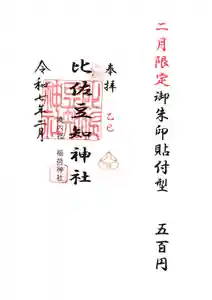 二月限定御朱印貼付型 五百円
奉拝
乙巳
比佐豆知神社
境内社 稲荷神社
令和七年二月